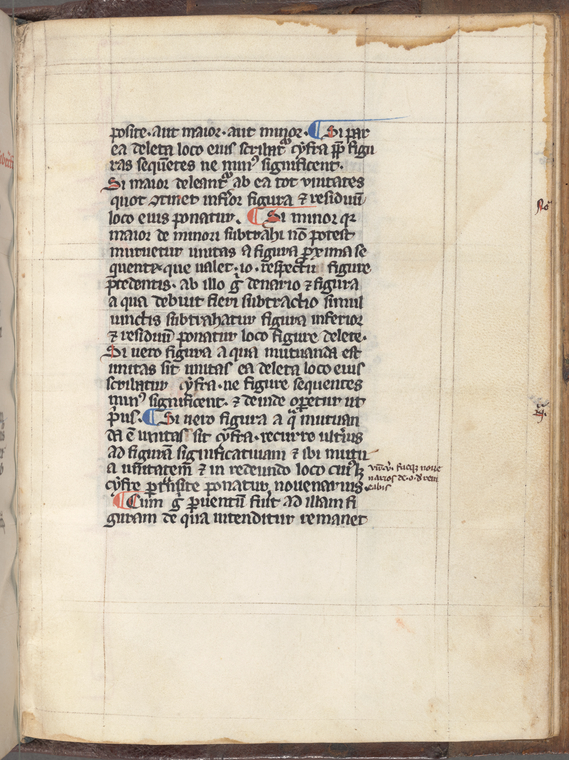 posite. aut maior. aut minor. ¶ Si par
ea deleta loco eius scribatᷣ cyfra ꝓp̄ figu
ras seqūetes ne minꝰ significent.
Si maior deleantᷣ ab ea tot vnitates
quot ɔtinet infͥor figura ⁊ residuū
loco eius ponatur. ¶ Si minor qr
maior de minori subtrahi nō potest
mutuetur unitas a figura ꝓxima se
quente. que ualet .io. respectu figure
p̄cedentis. ab illo gͦ denario ⁊ figura
a qua debuit fieri subtractio simul
iunctis subtrahatur figura inferior
⁊ residuū ponatur loco figure delete.
Si uero figura a qua mutuanda est
unitas sit unitas ea deleta loco eius
scribatur cyfra. ne figure sequentes
minꝰ significent. ⁊ deinde operetur ut
pͥus. ¶ Si uero figura a qͣ mutuan
da ē unitas sit cyfra. recurre ultͥus
ad figurā significatiuam ⁊ ibi mutu
a unitatem ⁊ in redeundo loco cuiꝰlꝫ
cyfre ꝑtransite ponatur nouenarius.
¶ Cum gͦ ꝑuentū fuit ad illam fi
guram de qua intenditur remanet
nouē
narios de .o. ⁊ rem